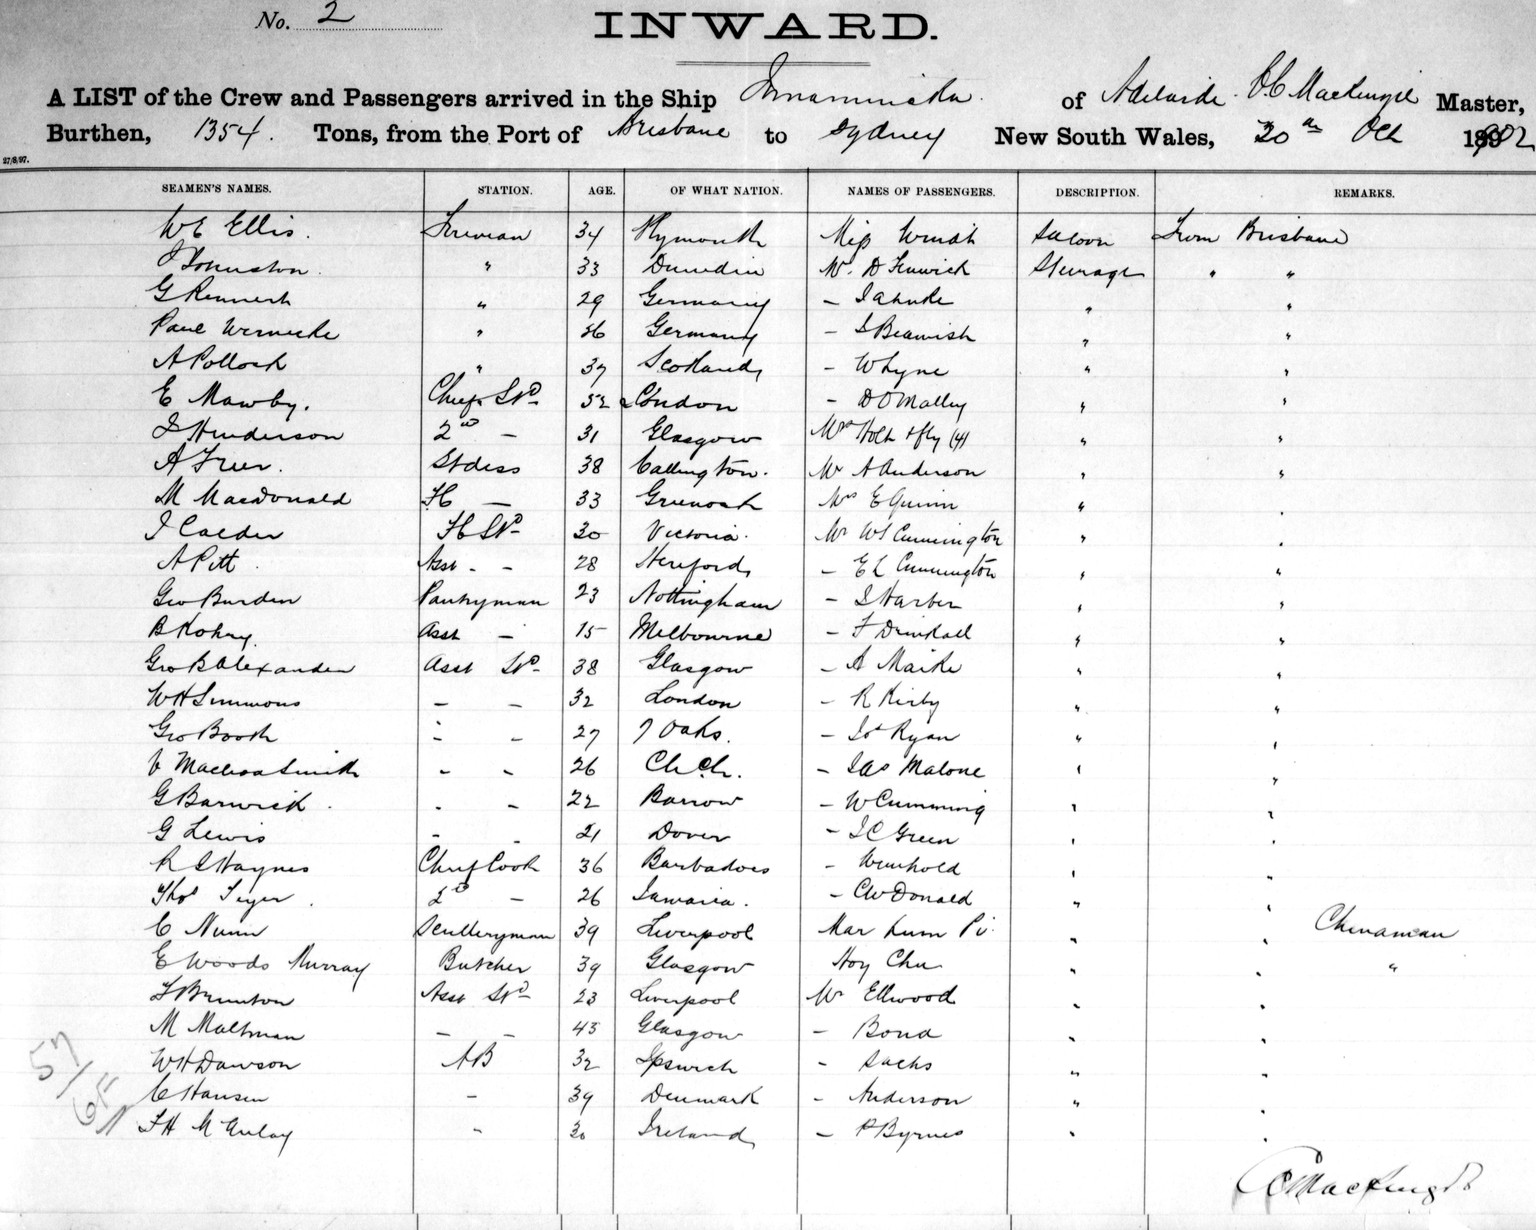 No. 2
INWARD.
A LIST of the Crew and Passengers arrived in the Ship Innamincka of Adelaide Mackenzie Master,
Burthen, 1354. Tons, from the Port of Brisbane to Sydney New South Wales, 30th Oct 1902
27/8/97.
SEAMEN'S NAMES. STATION. AGE. OF WHAT NATION. NAMES OF PASSENGERS. DESCRIPTION. REMARKS.
W E Ellis. Fireman 34 Plymouth Miss Saloon From Brisbane
J Johnston. " 33 Dunedin Mr. D Fenwick Steerage " "
G " 29 Germany – Jahnke " "
Paul Wernicke " 26 Germany – S Beamish " "
A Pollock " 37 Scotland – W Lyne " "
E Mawby. Chief Std 52 London – D O'Malley " "
J Henderson 2nd – 31 Glasgow Mrs Holt & fly (4) " "
A Freer. Stdess 38 Callington. Mr A Anderson " "
M Macdonald FC – 33 Greenock Mrs E Quinn " "
J Calder FC Std 30 Victoria. Mr W S Cunnington " "
A Pitt Asst - - 28 Hereford – E L Cunnington " "
Geo Burden Pantryman 23 Nottingham – S Harber " "
B Asst – 15 Melbourne – F Drinkall " "
Geo B Alexander Asst Std 38 Glasgow – A " "
W H Simmons – – 32 London – R Kirby " "
Geo Booth – – 27 7 Oaks. – Jos Ryan " "
V Smith - - 26 Ch Ch. – Jas Malone " "
G Barwick. - - 22 Barrow – W Cumming " "
G Lewis - - 21 Dover – J C Green " "
R S Haynes Chief Cook 36 Barbadoes – " "
Thos 2d – 26 Jamaica. – C W Donald " "
C Nunn Sculleryman 39 Liverpool Mar Lum " " Chinaman
E Woods Murray Butcher 39 Glasgow Hoy Chu " " "
Brunton Asst Std 23 Liverpool Mr Ellwood " "
M Maltman – – 45 Glasgow – Bond " "
W H Dawson AB 32 Ipswich – Sachs " "
C Hansen – 39 Denmark – Anderson " "
F H McAulay " 30 Ireland – P Byrnes " "
57/